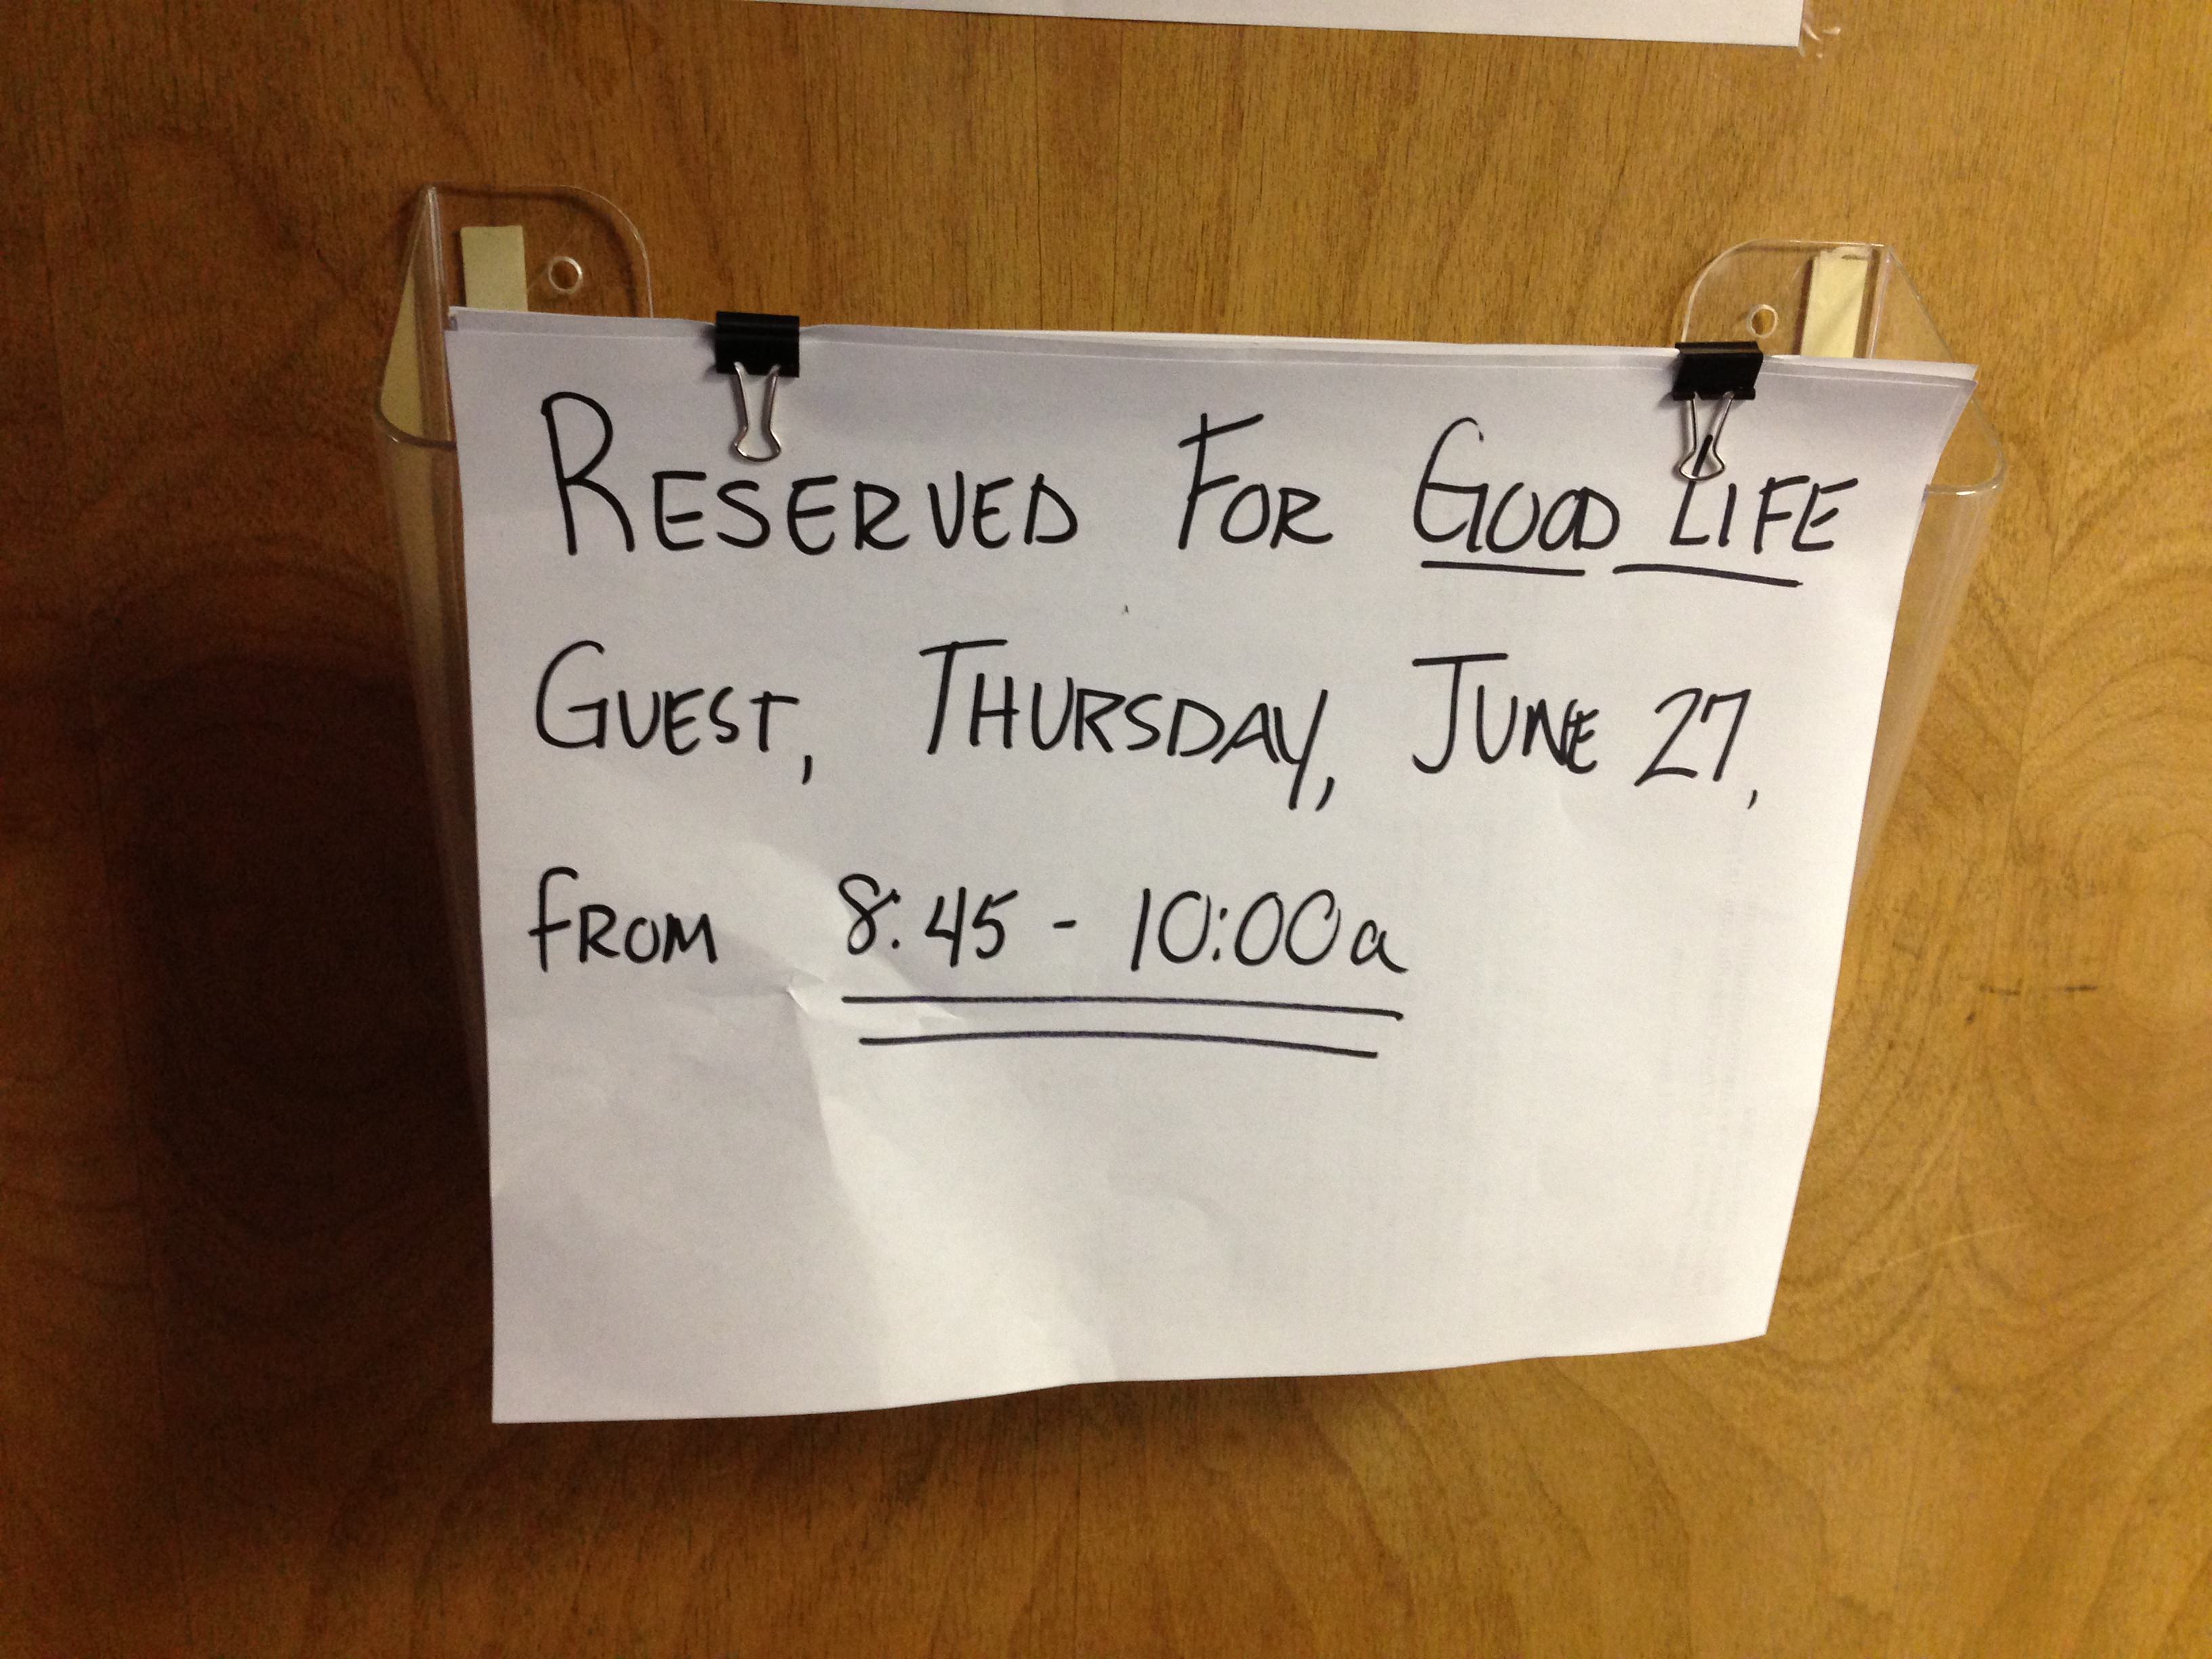 RESERVED FOR GOOD LIFE
GUEST, THURSDAY, JUNE 27,
FROM 8:45 - 10:00a